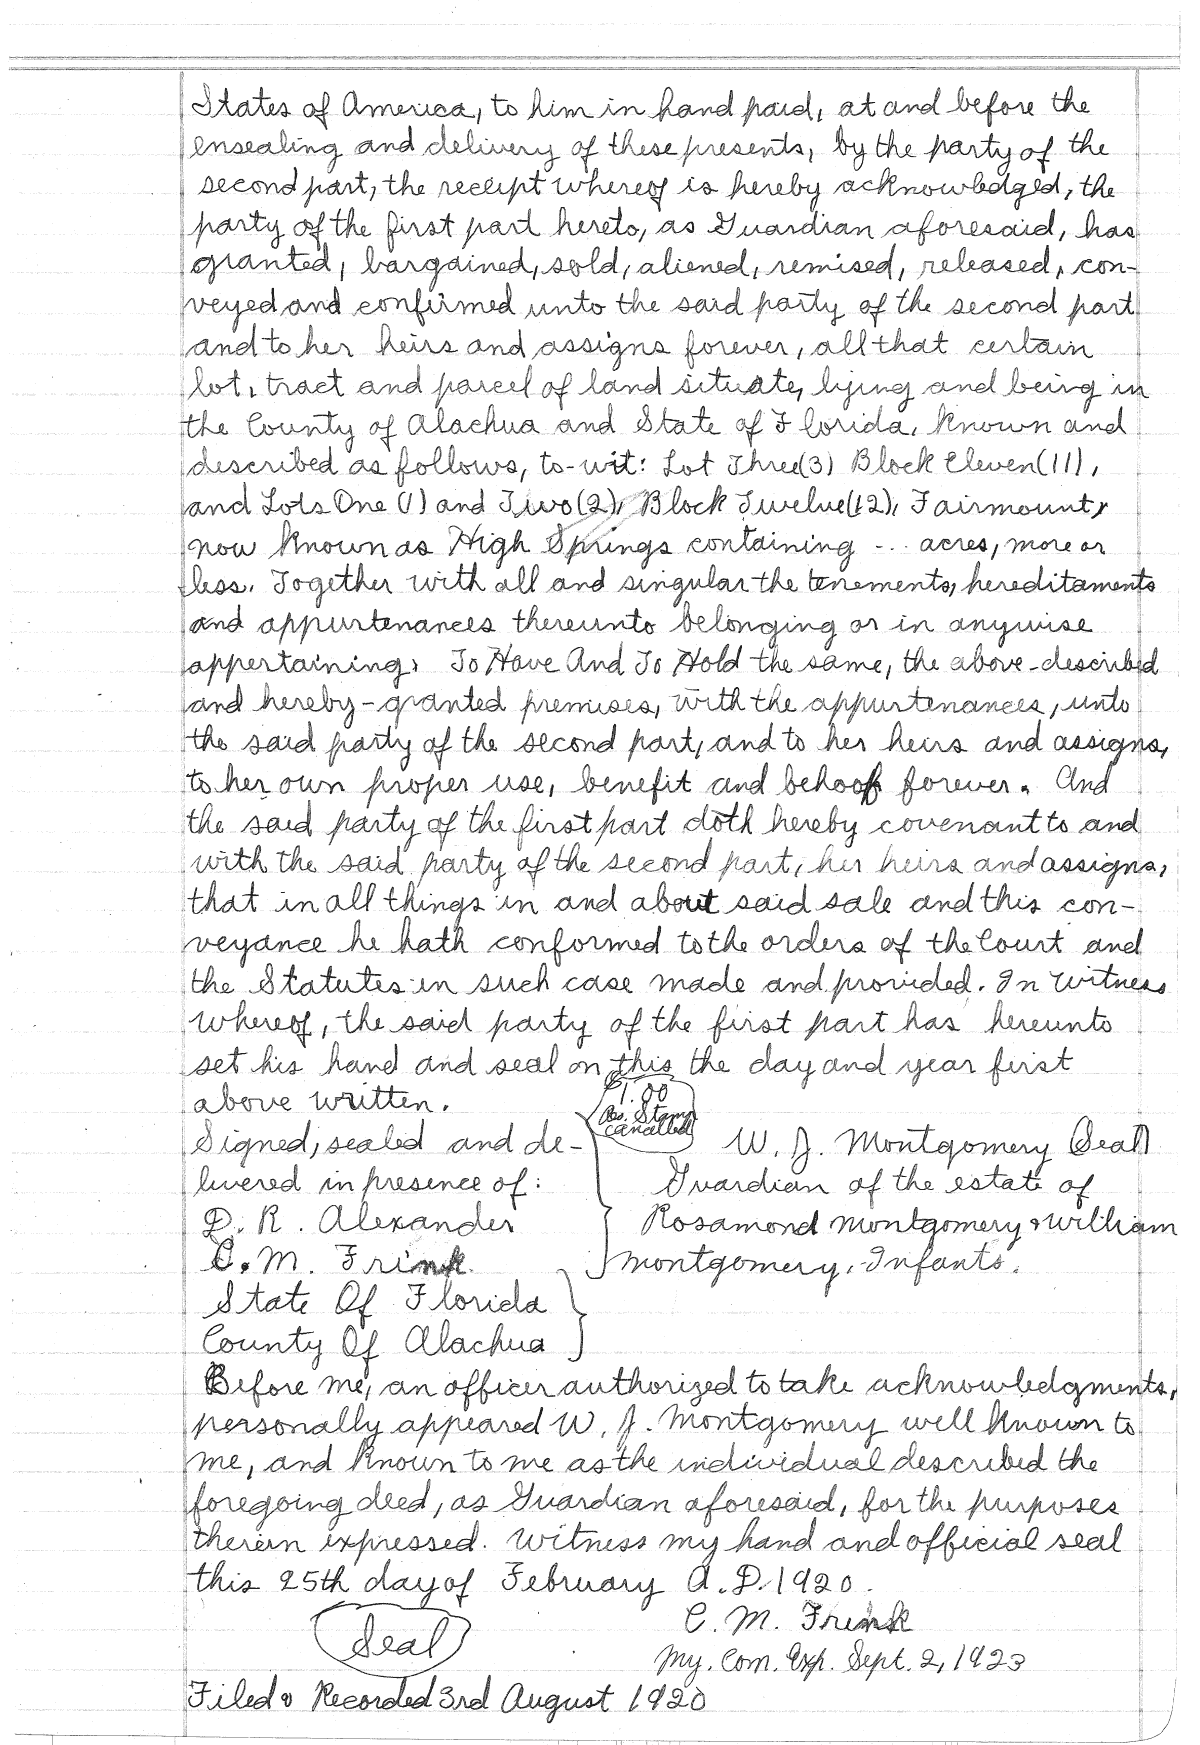 States of America, to him in hand paid, at and before the
ensealing and delivery of these presents, by the party of the
second part, the receipt whereof is hereby acknowledged, the
party of the first part hereto, as Guardian aforesaid, has
granted, bargained, sold, aliened, remised, released, con-
veyed and confirmed unto the said party of the second part
and to her heirs and assigns forever, all that certain
lot, tract and parcel of land situate, lying and being in
the County of Alachua and State of Florida, known and
described as follows, to-wit: Lot Three(3) Block Eleven(11),
and Lots One (1) and Two(2), Block Twelve(12), Fairmount,
now known as High Springs containing --- acres, more or
less. Together with all and singular the tenements, hereditaments
and appurtenances thereunto belonging or in anywise
appertaining. To Have And To Hold the same, the above-described
and hereby-granted premises, with the appurtenances, unto
the said party of the second part, and to her heirs and assigns,
to her own proper use, benefit and behoof forever. And
the said party of the first part doth hereby covenant to and
with the said party of the second part, her heirs and assigns,
that in all things in and about said sale and this con-
veyance he hath conformed to the orders of the Court and
the Statutes in such case made and provided. In Witness
whereof, the said party of the first part has hereunto
set his hand and seal on this the day and year first
above written.
$1.00
Doc. Stamp
cancelled
Signed, sealed and de- W. J. Montgomery (Seal)
livered in presence of: Guardian of the estate of
D. R. Alexander Rosamond Montgomery & William
C. M. Frink Montgomery, Infants.
State Of Florida
County Of Alachua
Before me, an officer authorized to take acknowledgments,
personally appeared W. J. Montgomery well known to
me, and known to me as the individual described the
foregoing deed, as Guardian aforesaid, for the purposes
therein expressed. Witness my hand and official seal
this 25th day of February A.D. 1920.
C. M. Frink
Seal
My. Com. Exp. Sept. 2, 1923
Filed & Recorded 3rd August 1920